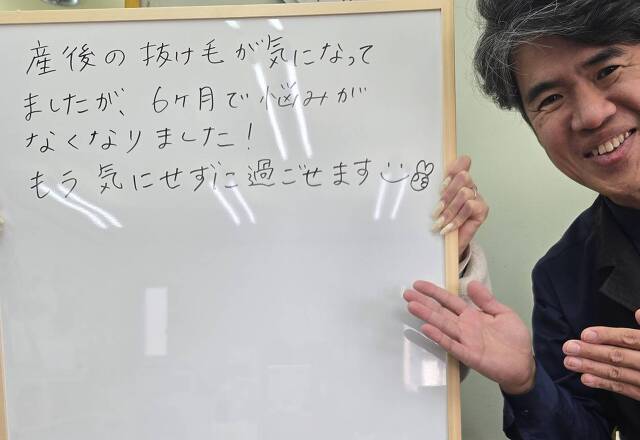 産後の抜け毛が気になって
ましたが、6ヶ月で悩みが
なくなりました!
もう気にせずに過ごせます